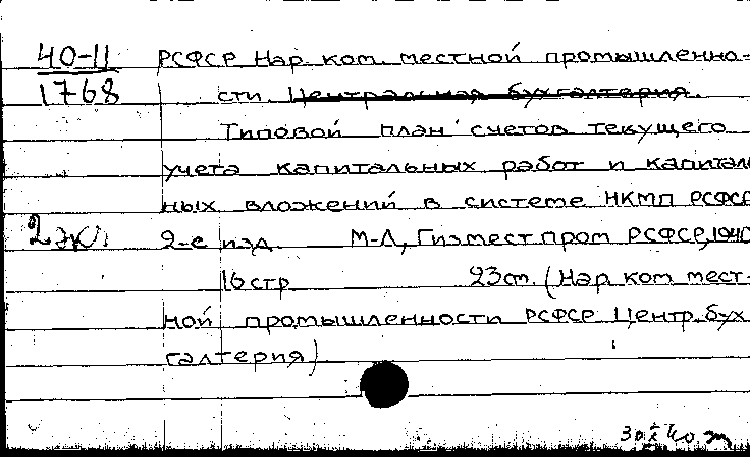 40-11 РСФСР Нар. ком. местной промышленно-
1768 сти. Центральная бухгалтерия.
Типовой план счетов текущего
учета капитальных работ и капиталь
ных вложений в системе НКМП РСФСР
2 экз. 2-е изд. М-Л, Гизместпром РСФСР, 1940
16 стр. 23 см. (Нар. ком. мест-
ной промышленности РСФСР Центр. бух
галтерия)